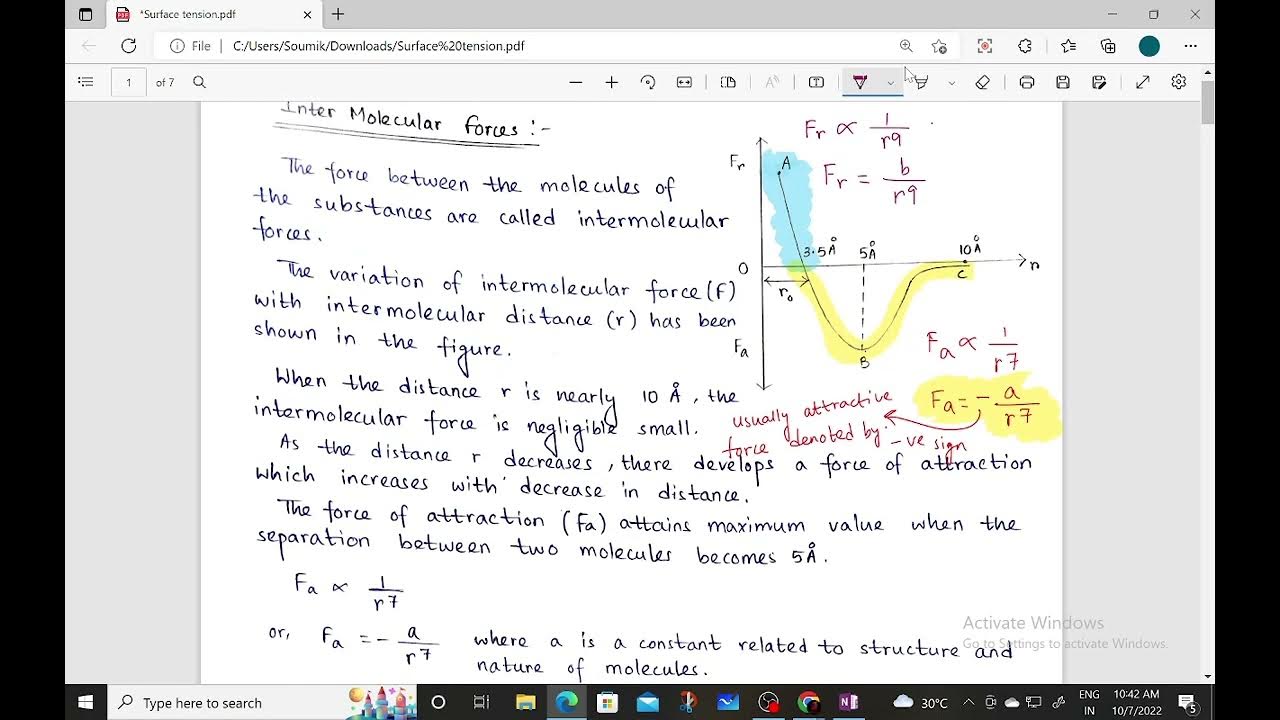 *Surface tension.pdf
File
C:/Users/Soumik/Downloads/Surface%20tension.pdf
1 of 7
Inter Molecular forces :-
The force between the molecules of
the substances are called intermolecular
forces.
The variation of intermolecular force (F)
with intermolecular distance (r) has been
shown in the figure.
When the distance r is nearly 10 Å, the
intermolecular force is negligible small.
As the distance r decreases, there develops a force of attraction
which increases with decrease in distance.
The force of attraction (Fa) attains maximum value when the
separation between two molecules becomes 5Å.
Fa ∝ 1/r7
or, Fa = - a/r7 where a is a constant related to structure and
nature of molecules.
Fr ∝ 1/r9
Fr = b/r9
Fr
A
3.5Å 5Å 10Å
O
r
C
r₀
Fa
B
Fa ∝ 1/r7
Fa = - a/r7
usually attractive
force denoted by -ve sign
Activate Windows
Go to Settings to activate Windows.
Type here to search
30°C
ENG
IN
10:42 AM
10/7/2022
5